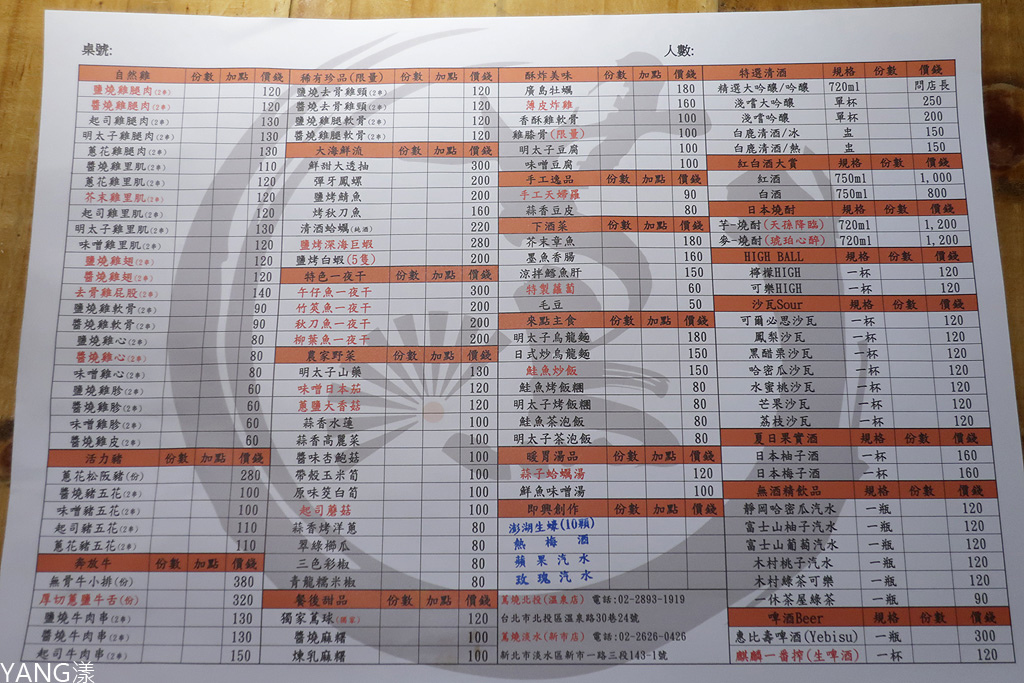 桌號:
人數:
自然雞 份數 加點 價錢
鹽燒雞腿肉(2串) 120
醬燒雞腿肉(2串) 120
起司雞腿肉(2串) 130
明太子雞腿肉(2串)
蔥花雞腿肉(2串) 130
醬燒雞里肌(2串) 110
蔥花雞里肌(2串) 120
芥末雞里肌(2串) 120
起司雞里肌(2串) 120
明太子雞里肌(2串) 130
味噌雞里肌(2串) 120
鹽燒雞翅(2串) 120
醬燒雞翅(2串) 120
去骨雞屁股(2串) 140
鹽燒雞軟骨(2串) 90
醬燒雞軟骨(2串) 90
鹽燒雞心(2串) 80
醬燒雞心(2串) 80
味噌雞心(2串) 80
鹽燒雞胗(2串) 60
醬燒雞胗(2串) 60
味噌雞胗(2串) 60
醬燒雞皮(2串) 60
活力豬 份數 加點 價錢
蔥花松阪豬(份) 280
醬燒豬五花(2串) 100
味噌豬五花(2串) 100
起司豬五花(2串) 110
蔥花豬五花(2串) 110
奔放牛 份數 加點 價錢
無骨牛小排(份) 380
厚切蔥鹽牛舌(份) 320
鹽燒牛肉串(2串) 130
醬燒牛肉串(2串) 130
起司牛肉串(2串) 150
稀有珍品(限量) 份數 加點 價錢
鹽燒去骨雞頸(2串) 120
醬燒去骨雞頸(2串) 120
鹽燒雞腿軟骨(2串) 120
醬燒雞腿軟骨(2串) 120
大海鮮流 份數 加點 價錢
鮮甜大透抽 300
彈牙鳳螺 200
鹽烤鯖魚 200
烤秋刀魚 160
清酒蛤蠣(純酒) 220
鹽烤深海巨蝦 280
鹽烤白蝦(5隻) 200
特色一夜干 份數 加點 價錢
午仔魚一夜干 300
竹筴魚一夜干 200
秋刀魚一夜干 200
柳葉魚一夜干 200
農家野菜 份數 加點 價錢
明太子山藥 130
味噌日本茄 120
蔥鹽大香菇 120
蒜香水蓮 100
蒜香高麗菜 100
醬味杏鮑菇 100
帶殼玉米筍 100
原味茭白筍 100
起司蘑菇 100
蒜香烤洋蔥 80
翠綠櫛瓜 80
三色彩椒 80
青龍糯米椒 80
餐後甜品 份數 加點 價錢
獨家篤球(獨家) 120
醬燒麻糬 100
煉乳麻糬 100
酥炸美味 份數 加點 價錢
廣島牡蠣 180
薄皮炸雞 160
香酥雞軟骨 100
雞膝骨(限量) 100
明太子豆腐 100
味噌豆腐 100
手工逸品 份數 加點 價錢
手工天婦羅 90
蒜香豆皮 80
下酒菜 份數 加點 價錢
芥末章魚 180
墨魚香腸 160
涼拌鱈魚肝 150
特製蘿蔔 60
毛豆 50
來點主食 份數 加點 價錢
明太子烏龍麵 180
日式炒烏龍麵 150
鮭魚炒飯 150
鮭魚烤飯糰 80
明太子烤飯糰 80
鮭魚茶泡飯 80
明太子茶泡飯 80
暖胃湯品 份數 加點 價錢
蒜子蛤蠣湯 120
鮮魚味噌湯 100
即興創作 份數 加點 價錢
澎湖生蠔(10顆)
熱梅酒
蘋果汽水
玫瑰汽水
萬燒北投(溫泉店) 電話:02-2893-1919
台北市北投區溫泉路30巷24號
萬燒淡水(新市店) 電話:02-2626-0426
新北市淡水區新市一路三段143-1號
特選清酒 規格 份數 價錢
精選大吟釀/吟釀 720ml 問店長
淺嚐大吟釀 單杯 250
淺嚐吟釀 單杯 200
白鹿清酒/冰 盅 150
白鹿清酒/熱 盅 150
紅白酒大賞 規格 份數 價錢
紅酒 750ml 1,000
白酒 750ml 800
日本燒酎 規格 份數 價錢
芋-燒酎(天孫降臨) 720ml 1,200
麥-燒酎(琥珀心醉) 720ml 1,200
HIGH BALL 規格 份數 價錢
檸檬HIGH 一杯 120
可樂HIGH 一杯 120
沙瓦Sour 規格 份數 價錢
可爾必思沙瓦 一杯 120
鳳梨沙瓦 一杯 120
黑醋栗沙瓦 一杯 120
哈密瓜沙瓦 一杯 120
水蜜桃沙瓦 一杯 120
芒果沙瓦 一杯 120
荔枝沙瓦 一杯 120
夏日果實酒 規格 份數 價錢
日本柚子酒 一杯 160
日本梅子酒 一杯 160
無酒精飲品 規格 份數 價錢
靜岡哈密瓜汽水 一瓶 120
富士山柚子汽水 一瓶 120
富士山葡萄汽水 一瓶 120
木村桃子汽水 一瓶 120
木村綠茶可樂 一瓶 120
一休茶屋綠茶 一瓶 90
啤酒Beer 規格 份數 價錢
惠比壽啤酒(Yebisu) 一瓶 300
麒麟一番搾(生啤酒) 一杯 120
YANG漾